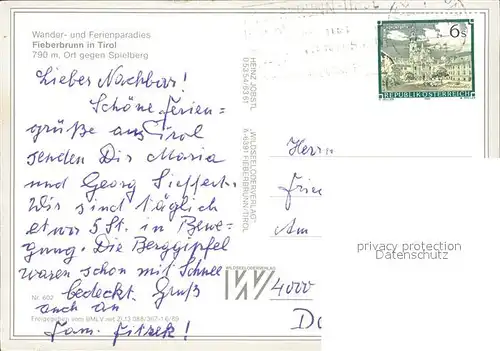 Wander- und Ferienparadies
Fieberbrunn in Tirol
790 m, Ort gegen Spielberg
Lieber Nachbar!
Schöne Ferien-
grüße aus Tirol
senden Dir Maria
und Georg Sieffert.
Wir sind täglich
etwa 5 St. in Bewe-
gung. Die Berggipfel
waren schon mit Schnee
bedeckt. Gruß
auch an
Fam. Fitzek!
Nr. 602
Freigegeben vom BMLV mit Zl.13.088/367-1.6/89
HEINZ JÖBSTL
05354/6361
"WILDSEELODERVERLAG"
A-6391 FIEBERBRUNN/TIROL
WILDSEELODERVERLAG
6s
REPUBLIK ÖSTERREICH
Herrn
Frie
Am
4000
privacy protection
Datenschutz